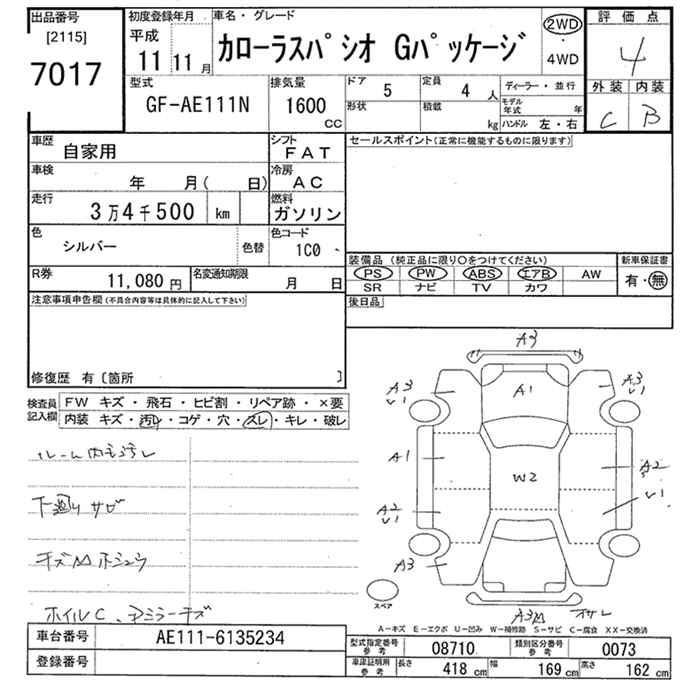 出品番号
[2115]
7017
初度登録年月
平成
11 11 月
車名・グレード
カローラスパシオ Gパッケージ
2WD
・
4WD
評価点
4
外装 内装
C B
型式
GF-AE111N
排気量
1600
CC
ドア 5
定員 4 人
形状
積載 kg
ディーラー・並行
モデル年式 年
ハンドル 左・右
車歴
自家用
シフト
FAT
セールスポイント(正常に機能するものに限ります)
車検
年 月( 日)
冷房
AC
走行
3万4千500 km
燃料
ガソリン
色
シルバー
色替
色コード
1C0
装備品 (純正品に限り○をつけてください)
新車保証書
PS PW ABS エアB AW
有・無
SR ナビ TV カワ
R券
11,080 円
名変通知期限
月 日
後日品
注意事項申告欄(不具合内容等は具体的に記入して下さい)
修復歴 有〔箇所 〕
検査員記入欄
FW キズ・飛石・ヒビ割・リペア跡・×要
内装 キズ・汚レ・コゲ・穴・スレ・キレ・破レ
ルーム内毛汚レ
下廻りサビ
キズ ホシュウ
ホイルC、ミラーキズ
A3
A1
A3
V1
A3
V1
A1
W2
A2
V1
A2
V1
A3
A3
スペア
A-キズ E-エクボ U-凹み W-補修跡 S-サビ C-腐食 XX-交換済
車台番号
AE111-6135234
登録番号
型式指定番号
参考
08710
類別区分番号
参考
0073
車庫証明用
参考
長さ 418 cm
幅 169 cm
高さ 162 cm